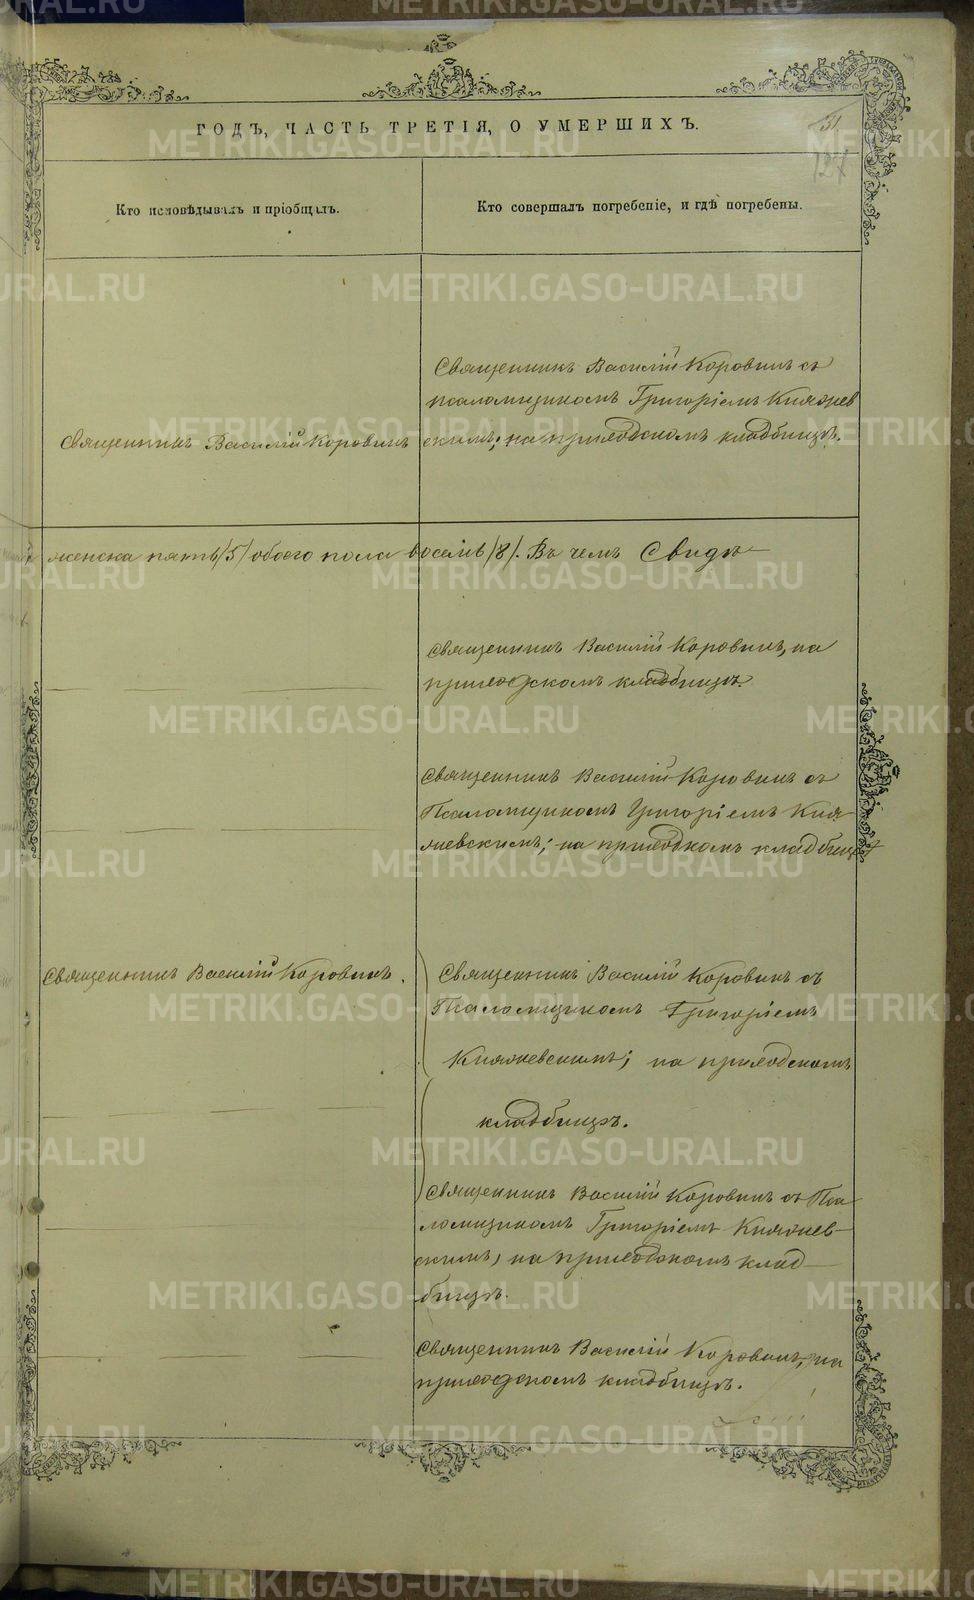 ГОДЪ, ЧАСТЬ ТРЕТІЯ, О УМЕРШИХЪ.
51
127
Кто исповѣдывалъ и пріобщалъ.
Кто совершалъ погребеніе, и гдѣ погребены.
Священникъ Василій Коровинъ
Священникъ Василій Коровинъ съ
псаломщикомъ Григоріемъ Княжев
скимъ; на приходскомъ кладбищѣ.
женска пять /5/ обоего пола восемь /8/. Въ чемъ Свидѣ-
Священникъ Василій Коровинъ, на
приходскомъ кладбищѣ.
Священникъ Василій Коровинъ съ
Псаломщикомъ Григоріемъ Кня
жевскимъ; на приходкомъ кладбищѣ
Священникъ Василій Коровинъ.
Священникъ Василій Коровинъ съ
Псаломщикомъ Григоріемъ
Княжевскимъ; на приходскомъ
кладбищѣ.
Священникъ Василій Коровинъ съ Пса
ломщикомъ Григоріемъ Княжев-
скимъ, на приходскомъ клад-
бищѣ.
Священникъ Василій Коровинъ, на
приходскомъ кладбищѣ.
METRIKI.GASO-URAL.RU